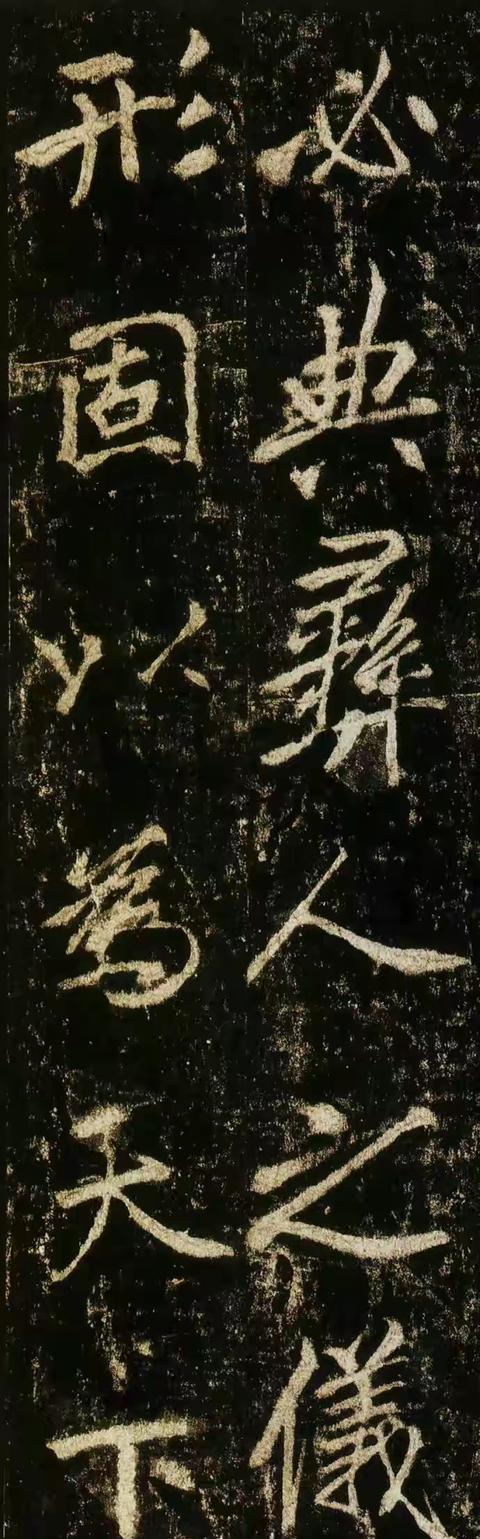 必典彝人之儀
形固以為天下